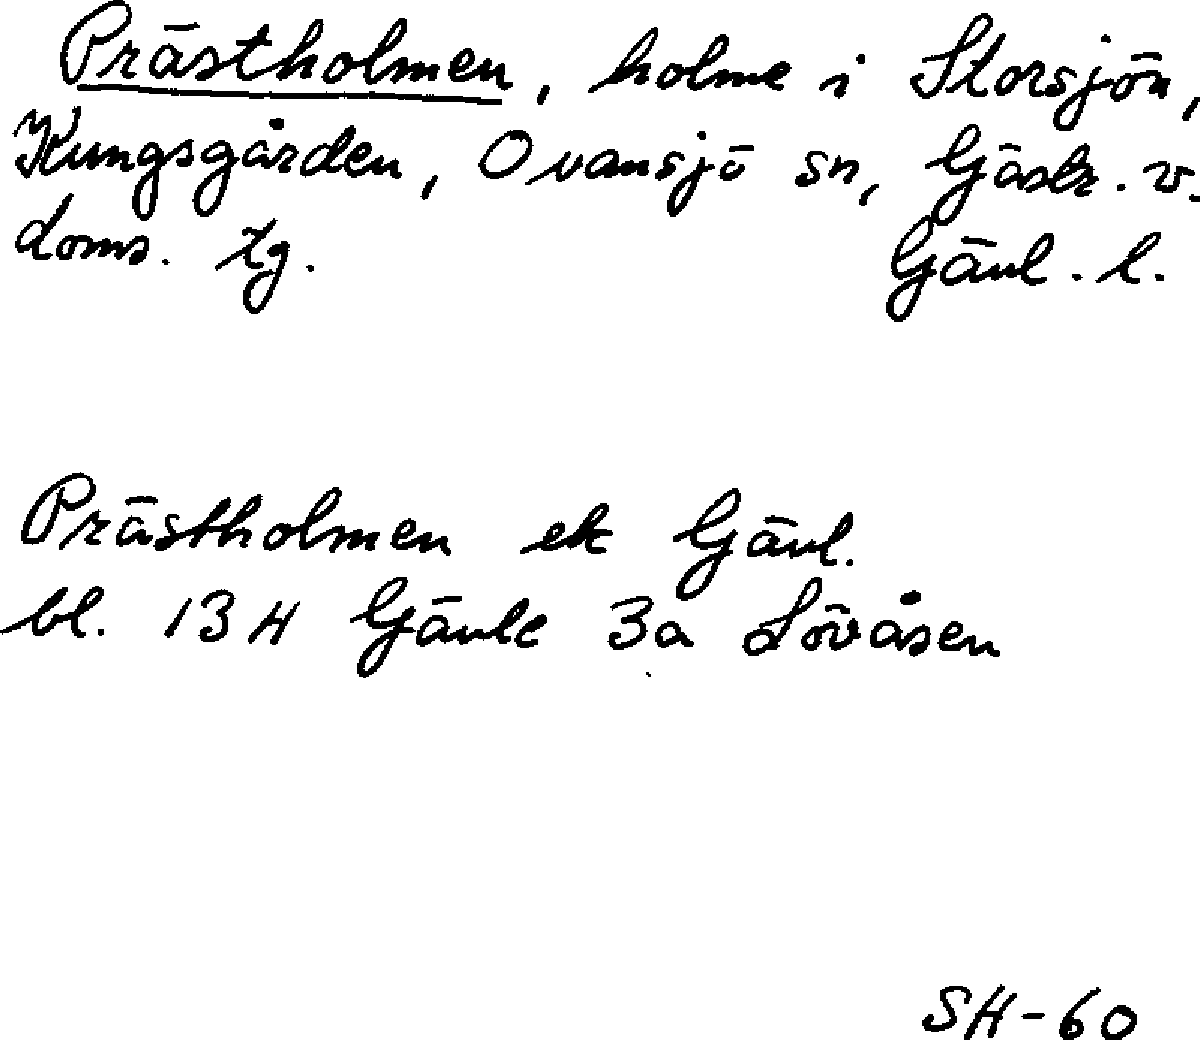 Prästholmen, holme i Storsjön,
Kungsgården, Ovansjö sn, Gästr. v.
doms. tg. Gävl. l.
Prästholmen ek Gävl.
bl. 13 H Gävle 3a Lövåsen
SH-60